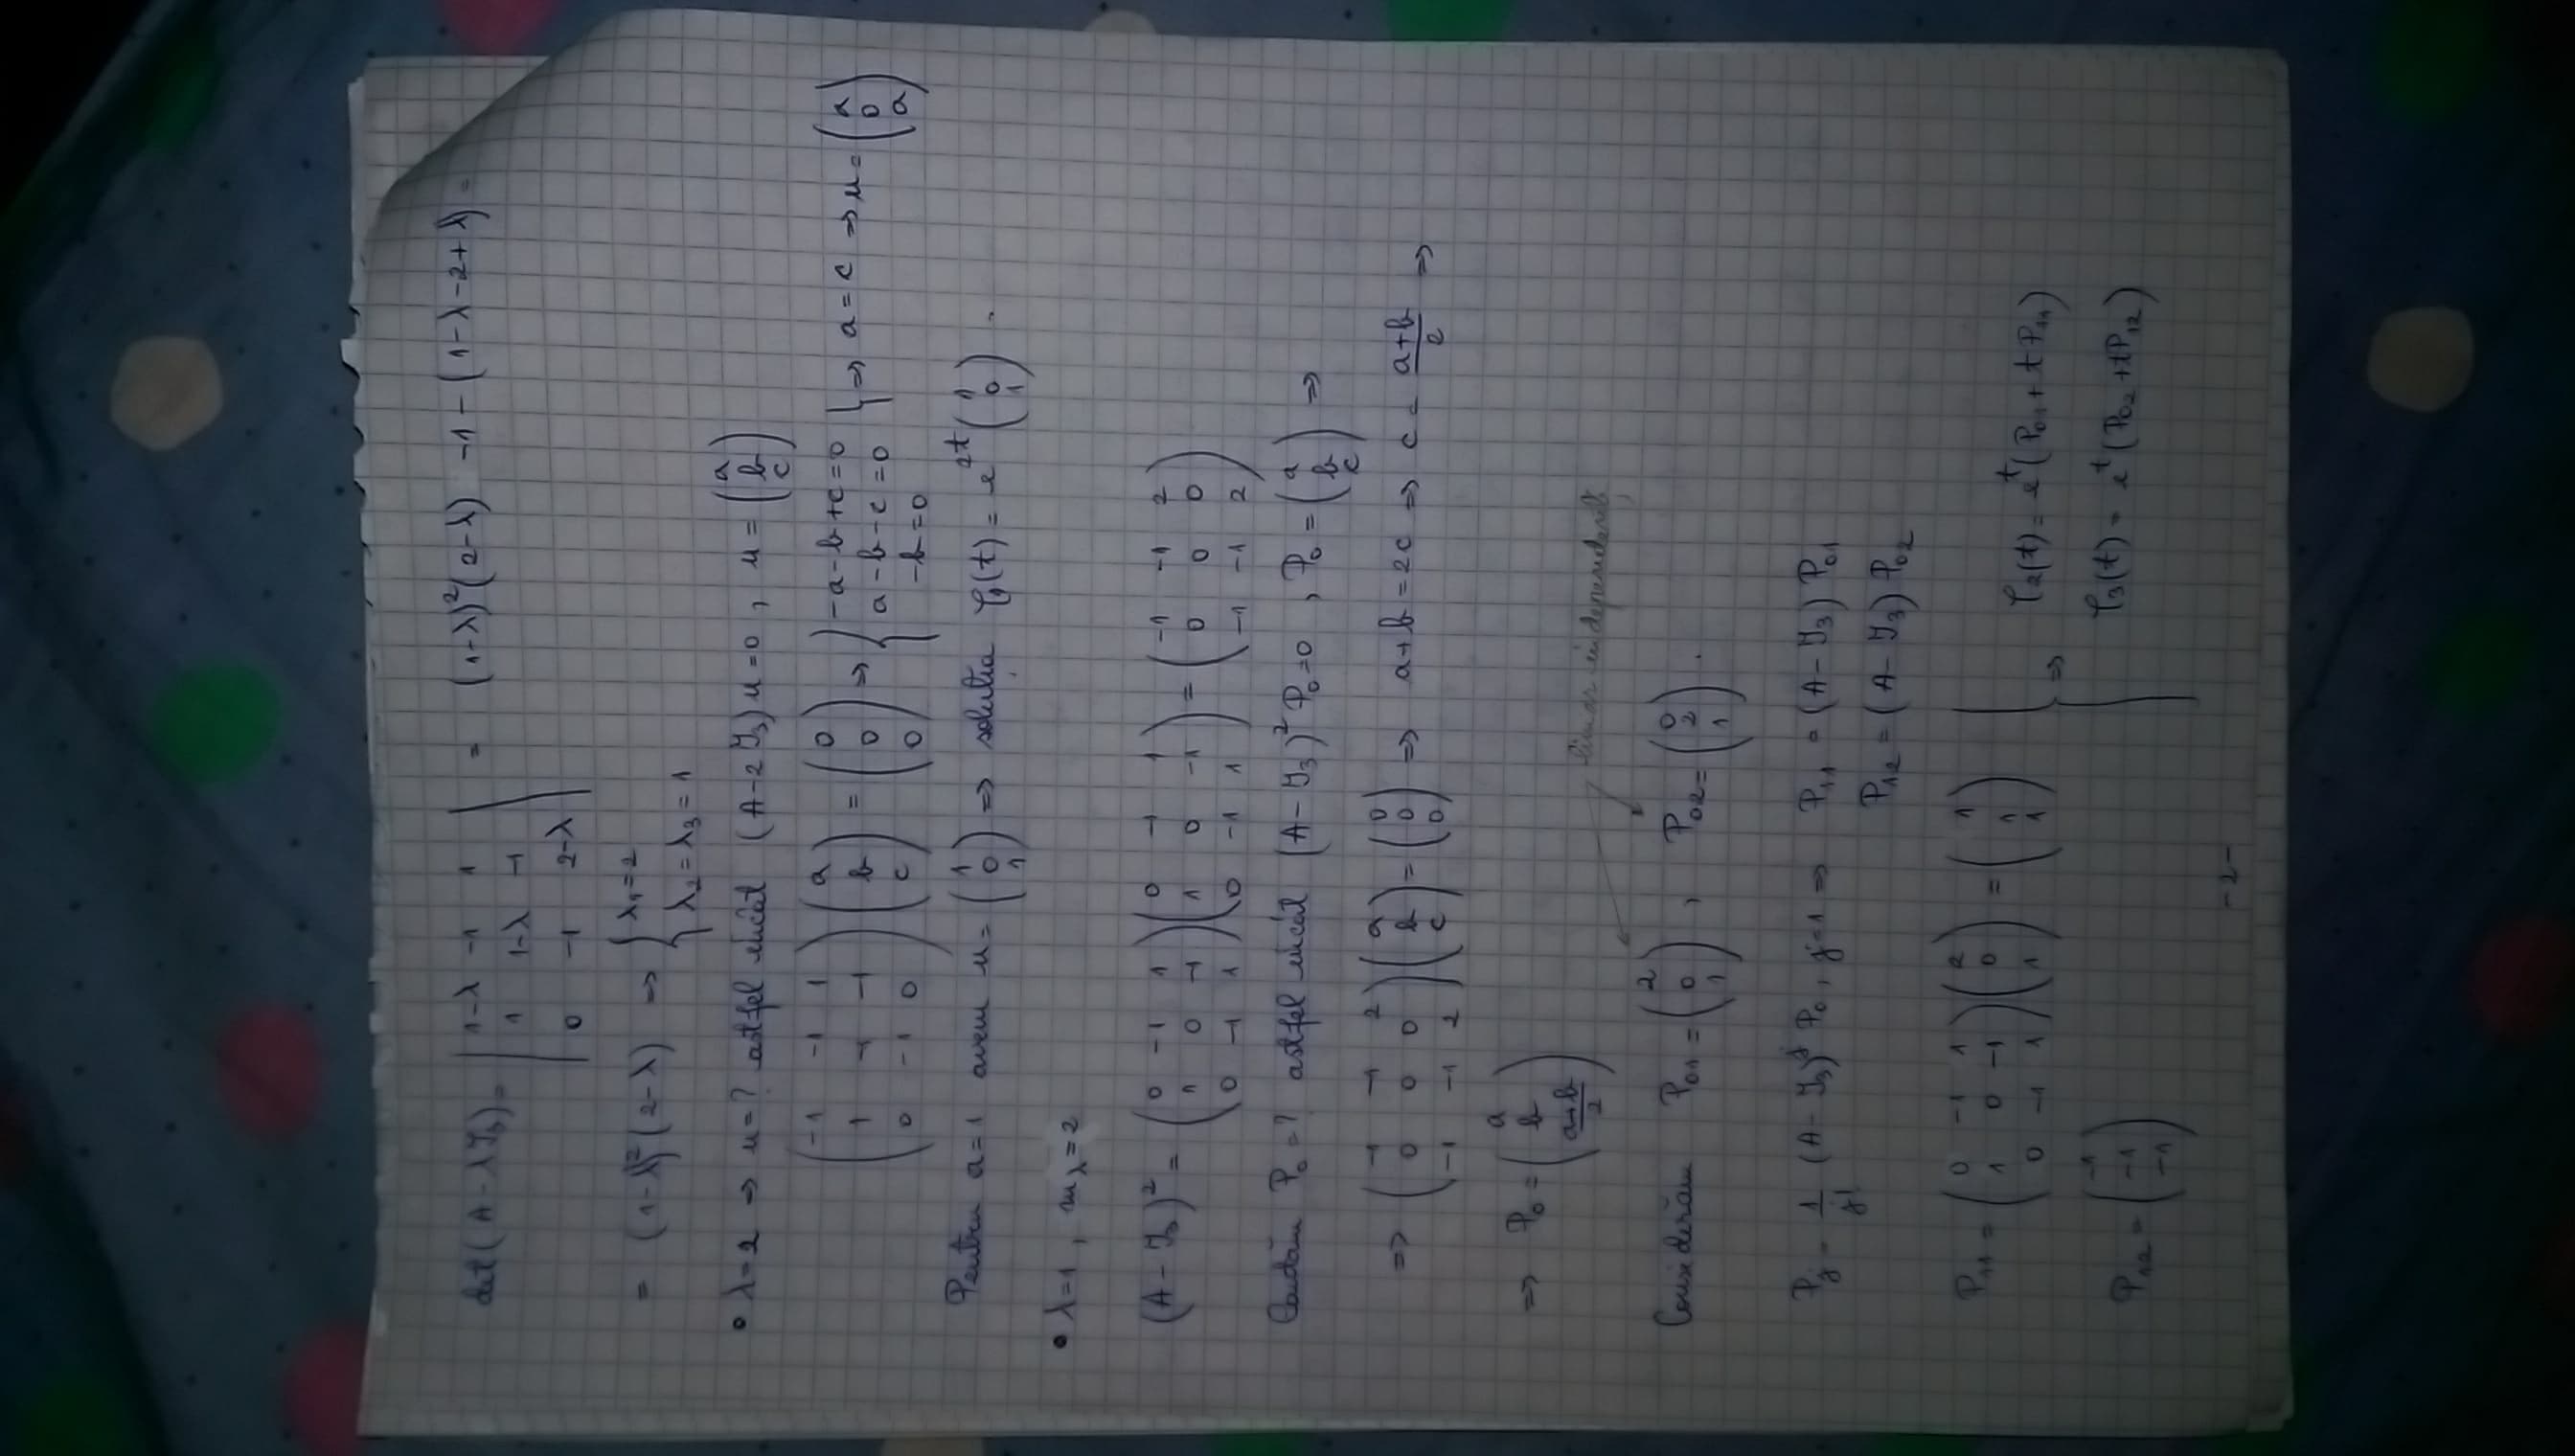 det(A-λJ₃)= | 1-λ -1 1 | = (1-λ)²(2-λ) -1-(1-λ-2+λ) =
| 1 1-λ -1 |
| 0 -1 2-λ |
= (1-λ)²(2-λ) ⇒ { λ₁=2
λ₂=λ₃=1
• λ=2 ⇒ u=? astfel încât (A-2J₃)u=0, u= (a b c)
(-1 -1 1) (a) = (0) ⇒ { -a-b+c=0 } ⇒ a=c ⇒ u= (a 0 a)
(1 -1 -1) (b) (0) a-b-c=0
(0 -1 0) (c) (0) -b=0
Pentru a=1 avem u= (1 0 1) ⇒ soluția φ₁(t)=e^{2t} (1 0 1).
• λ=1, m_λ=2
(A-J₃)²= (0 -1 1) (0 -1 1) = (-1 -1 2)
(1 0 -1) (1 0 -1) (0 0 0)
(0 -1 1) (0 -1 1) (-1 -1 2)
Căutăm P₀=? astfel încât (A-J₃)²P₀=0, P₀= (a b c) ⇒
⇒ (-1 -1 2) (a) = (0) ⇒ a+b=2c ⇒ c= (a+b)/2 ⇒
(0 0 0) (b) (0)
(-1 -1 2) (c) (0)
⇒ P₀= (a b (a+b)/2)
liniar independenți
Considerăm P₀₁= (2 0 1), P₀₂= (0 2 1).
P_j = 1/j! (A-J₃)^j P₀, j=1 ⇒ P₁₁ = (A-J₃) P₀₁
P₁₂ = (A-J₃) P₀₂
P₁₁= (0 -1 1) (2) = (1)
(1 0 -1) (0) (1)
(0 -1 1) (1) (1)
P₁₂= (-1 -1 -1)
⇒ φ₂(t)= e^t(P₀₁+tP₁₁)
φ₃(t)= e^t(P₀₂+tP₁₂)
-2-